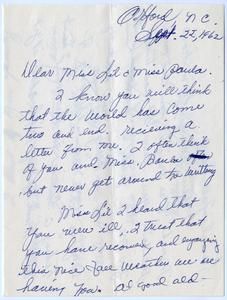 Oxford, N.C.
Sept. 22, 1962
Dear Miss Lil & Miss Paula.
I know you will think
that the world has come
two and end. recieving a
letter from me. I often think
of you and Miss. Paula
but never get around to writting
Miss Lil I heard that
you were ill, I trust that
you have recover, and enjoying
this nice fall weather we are
having now. As good old-